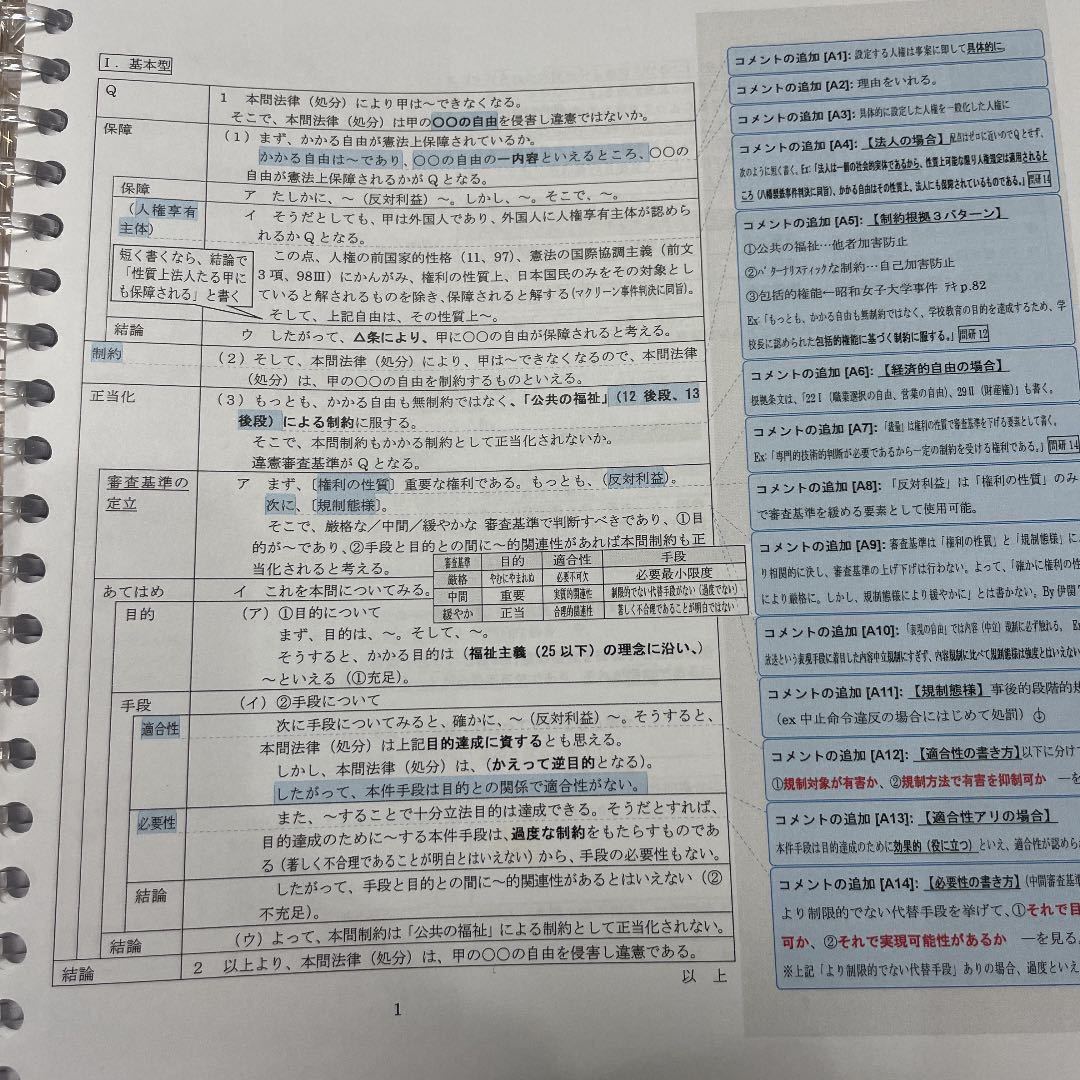 Ⅰ．基本型
Q
1 本問法律（処分）により甲は～できなくなる。
そこで、本問法律（処分）は甲の〇〇の自由を侵害し違憲ではないか。
保障
（1）まず、かかる自由が憲法上保障されているか。
かかる自由は～であり、〇〇の自由の一内容といえるところ、〇〇の
自由が憲法上保障されるかがQとなる。
保障
ア たしかに、～（反対利益）～。しかし、～。そこで、～。
（人権享有
主体）
イ そうだとしても、甲は外国人であり、外国人に人権享有主体が認めら
れるかQとなる。
短く書くなら、結論で
「性質上法人たる甲に
も保障される」と書く
この点、人権の前国家的性格（11、97）、憲法の国際協調主義（前文
3項、98Ⅲ）にかんがみ、権利の性質上、日本国民のみをその対象とし
ていると解されるものを除き、保障されると解する（マクリーン事件判決に同旨）。
そして、上記自由は、その性質上～。
結論
ウ したがって、△条により、甲に〇〇の自由が保障されると考える。
制約
（2）そして、本問法律（処分）により、甲は～できなくなるので、本問法律
（処分）は、甲の〇〇の自由を制約するものといえる。
正当化
（3）もっとも、かかる自由も無制約ではなく、「公共の福祉」（12後段、13
後段）による制約に服する。
そこで、本問制約もかかる制約として正当化されないか。
違憲審査基準がQとなる。
審査基準の
定立
ア まず、〔権利の性質〕重要な権利である。もっとも、（反対利益）。
次に、〔規制態様〕。
そこで、厳格な／中間／緩やかな 審査基準で判断すべきであり、①目
的が～であり、②手段と目的との間に～的関連性があれば本問制約も正
当化されると考える。
審査基準 目的 適合性 手段
厳格 やむにやまれぬ 必要不可欠 必要最小限度
中間 重要 実質的関連性 制限的でない代替手段がない（過度でない）
緩やか 正当 合理的関連性 著しく不合理であることが明白ではない
あてはめ
イ これを本問についてみる。
目的
（ア）①目的について
まず、目的は、～。そして、～。
そうすると、かかる目的は（福祉主義（25以下）の理念に沿い、）
～といえる（①充足）。
手段
（イ）②手段について
適合性
次に手段についてみると、確かに、～（反対利益）～。そうすると、
本問法律（処分）は上記目的達成に資するとも思える。
しかし、本問法律（処分）は、（かえって逆目的となる）。
したがって、本件手段は目的との関係で適合性がない。
必要性
また、～することで十分立法目的は達成できる。そうだとすれば、
目的達成のために～する本件手段は、過度な制約をもたらすものであ
る（著しく不合理であることが明白とはいえない）から、手段の必要性もない。
結論
したがって、手段と目的との間に～的関連性があるとはいえない（②
不充足）。
結論
（ウ）よって、本問制約は「公共の福祉」による制約として正当化されない。
結論
2 以上より、本問法律（処分）は、甲の〇〇の自由を侵害し違憲である。
以 上
1
コメントの追加 [A1]: 設定する人権は事案に即して具体的に。
コメントの追加 [A2]: 理由をいれる。
コメントの追加 [A3]: 具体的に設定した人権を一般化した人権に
コメントの追加 [A4]: 【法人の場合】配点はゼロに近いのでQとせず、
次のように短く書く。Ex:「法人は一個の社会的実体であるから、性質上可能な限り人権規定は適用されると
ころ（八幡製鉄事件判決に同旨）、かかる自由はその性質上、法人にも保障されているものである。」問研14
コメントの追加 [A5]: 【制約根拠3パターン】
①公共の福祉…他者加害防止
②ﾊﾟﾀｰﾅﾘｽﾃｨｯｸな制約…自己加害防止
③包括的権能←昭和女子大学事件 ﾃｷp.82
Ex:「もっとも、かかる自由も無制約ではなく、学校教育の目的を達成するため、学
校長に認められた包括的権能に基づく制約に服する。」問研12
コメントの追加 [A6]: 【経済的自由の場合】
根拠条文は、「22Ⅰ（職業選択の自由、営業の自由）、29Ⅱ（財産権）」も書く。
コメントの追加 [A7]: 「裁量」は権利の性質で審査基準を下げる要素として書く。
Ex:「専門的技術的判断が必要であるから一定の制約を受ける権利である。」問研14
コメントの追加 [A8]: 「反対利益」は「権利の性質」のみ
で審査基準を緩める要素として使用可能。
コメントの追加 [A9]: 審査基準は「権利の性質」と「規制態様」によ
り相関的に決し、審査基準の上げ下げは行わない。よって、「確かに権利の性
により厳格に。しかし、規制態様により緩やかに」とは書かない。By伊関
コメントの追加 [A10]: 「表現の自由」では内容（中立）規制に必ず触れる。 Ex
放送という表現手段に着目した内容中立規制にすぎず、内容規制に比べて規制態様は強度とはいえない
コメントの追加 [A11]: 【規制態様】事後的段階的規
（ex 中止命令違反の場合にはじめて処罰）
コメントの追加 [A12]: 【適合性の書き方】以下に分けて
①規制対象が有害か、②規制方法で有害を抑制可か ―を
コメントの追加 [A13]: 【適合性アリの場合】
本件手段は目的達成のために効果的（役に立つ）といえ、適合性が認めら
コメントの追加 [A14]: 【必要性の書き方】（中間審査基準
より制限的でない代替手段を挙げて、①それで目
可か、②それで実現可能性があるか ―を見る。
※上記「より制限的でない代替手段」ありの場合、過度といえ